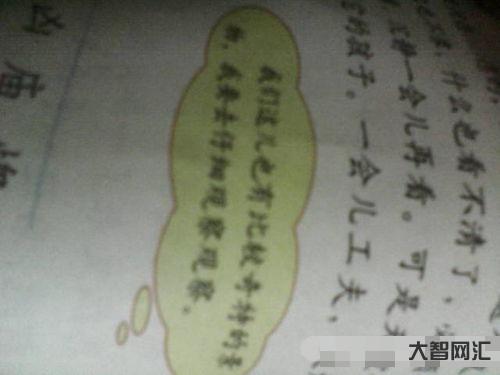 什么也看不清了，
一会儿再看。可是
的孩子。一会儿工夫，
我们这儿也有比较奇特的景
物，我要去仔细观察观察。
凶 庙
大智网汇